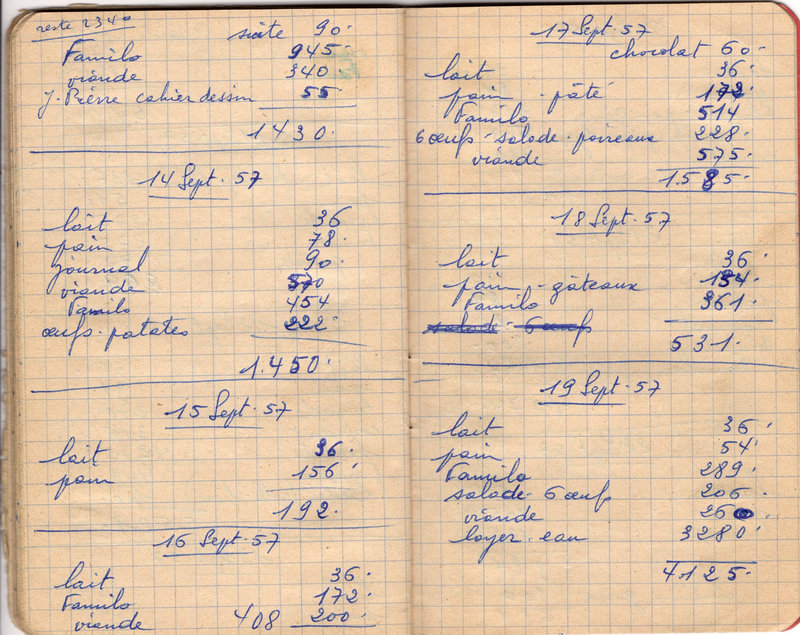 reste 2340
suite 90.
Familo 945.
viande 340.
J. Pierre cahier dessin 55
1430.
14 Sept. 57
lait 36
pain 78.
journal 90.
viande 570
Familo 454
œufs. patates 222
1.450.
15 Sept. 57
lait 36.
pain 156
192.
16 Sept. 57
lait 36.
Familo 172.
viande 408 200.
17 Sept. 57
chocolat 60.
lait 36.
pain - pâté 172.
Familo 514
6 œufs - salade - poireaux 228.
viande 575.
1.585.
18 Sept. 57
lait 36.
pain - gâteaux 134.
Familo 361.
salade - 6 œufs
531.
19 Sept. 57
lait 36.
pain 54.
Familo 289.
salade - 6 œufs 206.
viande 260
loyer - eau 3280.
4125.